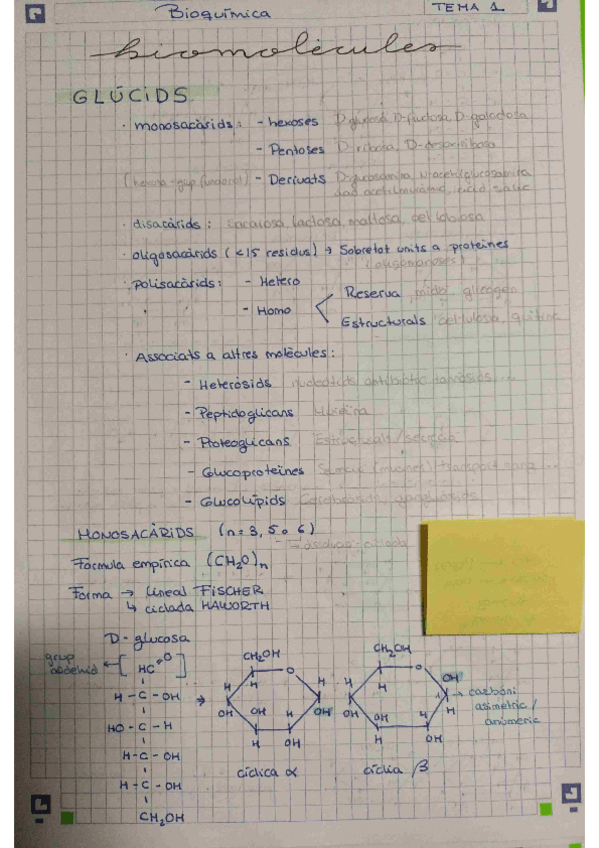 Bioquímica
TEMA 1
biomolècules
GLÚCIDS
· monosacàrids: - hexoses D-glucosa, D-fructosa, D-galactosa
- Pentoses D-ribosa, D-desoxiribosa
- Derivats D-glucosamina, N-acetilglucosamina
· disacàrids: Sacarosa, lactosa, maltosa, cel·lobiosa
· oligosacàrids (<15 residus) → Sobretot units a proteïnes
· Polisacàrids: - Hetero
- Homo
Reserva midó, glicogen
Estructurals cel·lulosa, quitina
· Associats a altres molècules:
- Heteròsids nucleòtids antibiòtic
- Peptidoglicans Mureina
- Proteoglicans Estructurals/secreció
- Glucoproteïnes
- Glucolípids
MONOSACÀRIDS (n=3, 5 o 6)
Fórmula empírica (CH₂O)n
Forma → lineal FISCHER
↳ ciclada HAWORTH
D-glucosa
grup
aldehid
HC=O
H-C-OH
HO-C-H
H-C-OH
H-C-OH
CH₂OH
CH₂OH
O
H
H
H
OH
OH
H
OH
H
OH
cíclica α
CH₂OH
O
OH
H
H
H
OH
OH
H
H
OH
cíclica β
→ carboni
asimètric/
anomèric